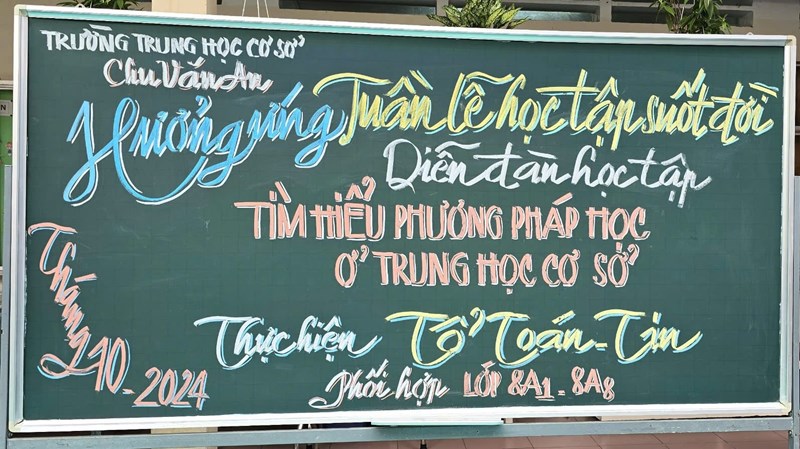 TRƯỜNG TRUNG HỌC CƠ SỞ
Chu Văn An
Hưởng ứng Tuần lễ học tập suốt đời
Diễn đàn học tập
TÌM HIỂU PHƯƠNG PHÁP HỌC
Ở TRUNG HỌC CƠ SỞ
Tháng 10-2024
Thực hiện Tổ Toán-Tin
Phối hợp LỚP 8A1-8A8